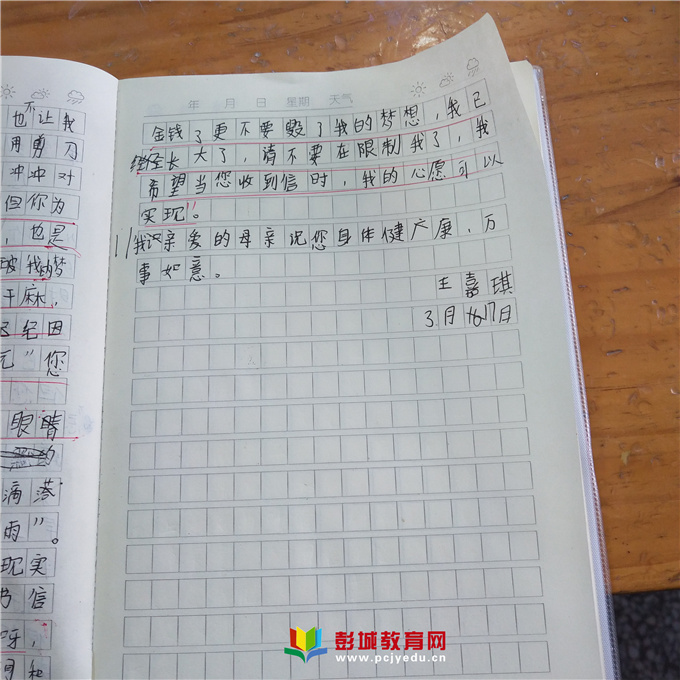 也不让我
用剪刀
冲冲对
但你为
，也是
破我的梦
干麻，
纪因
”您
眼睛
的
滴落
雨”。
现实
书信
呀，
和
年 月 日 星期 天气
金钱了更不要毁了我的梦想，我已
经长大了，请不要在限制我了，我
希望当您收到信时，我的心愿可以
实现。
我亲爱的母亲祝您身体健康，万
事如意。
王嘉琪
3月17日
彭城教育网
www.pcjyedu.cn